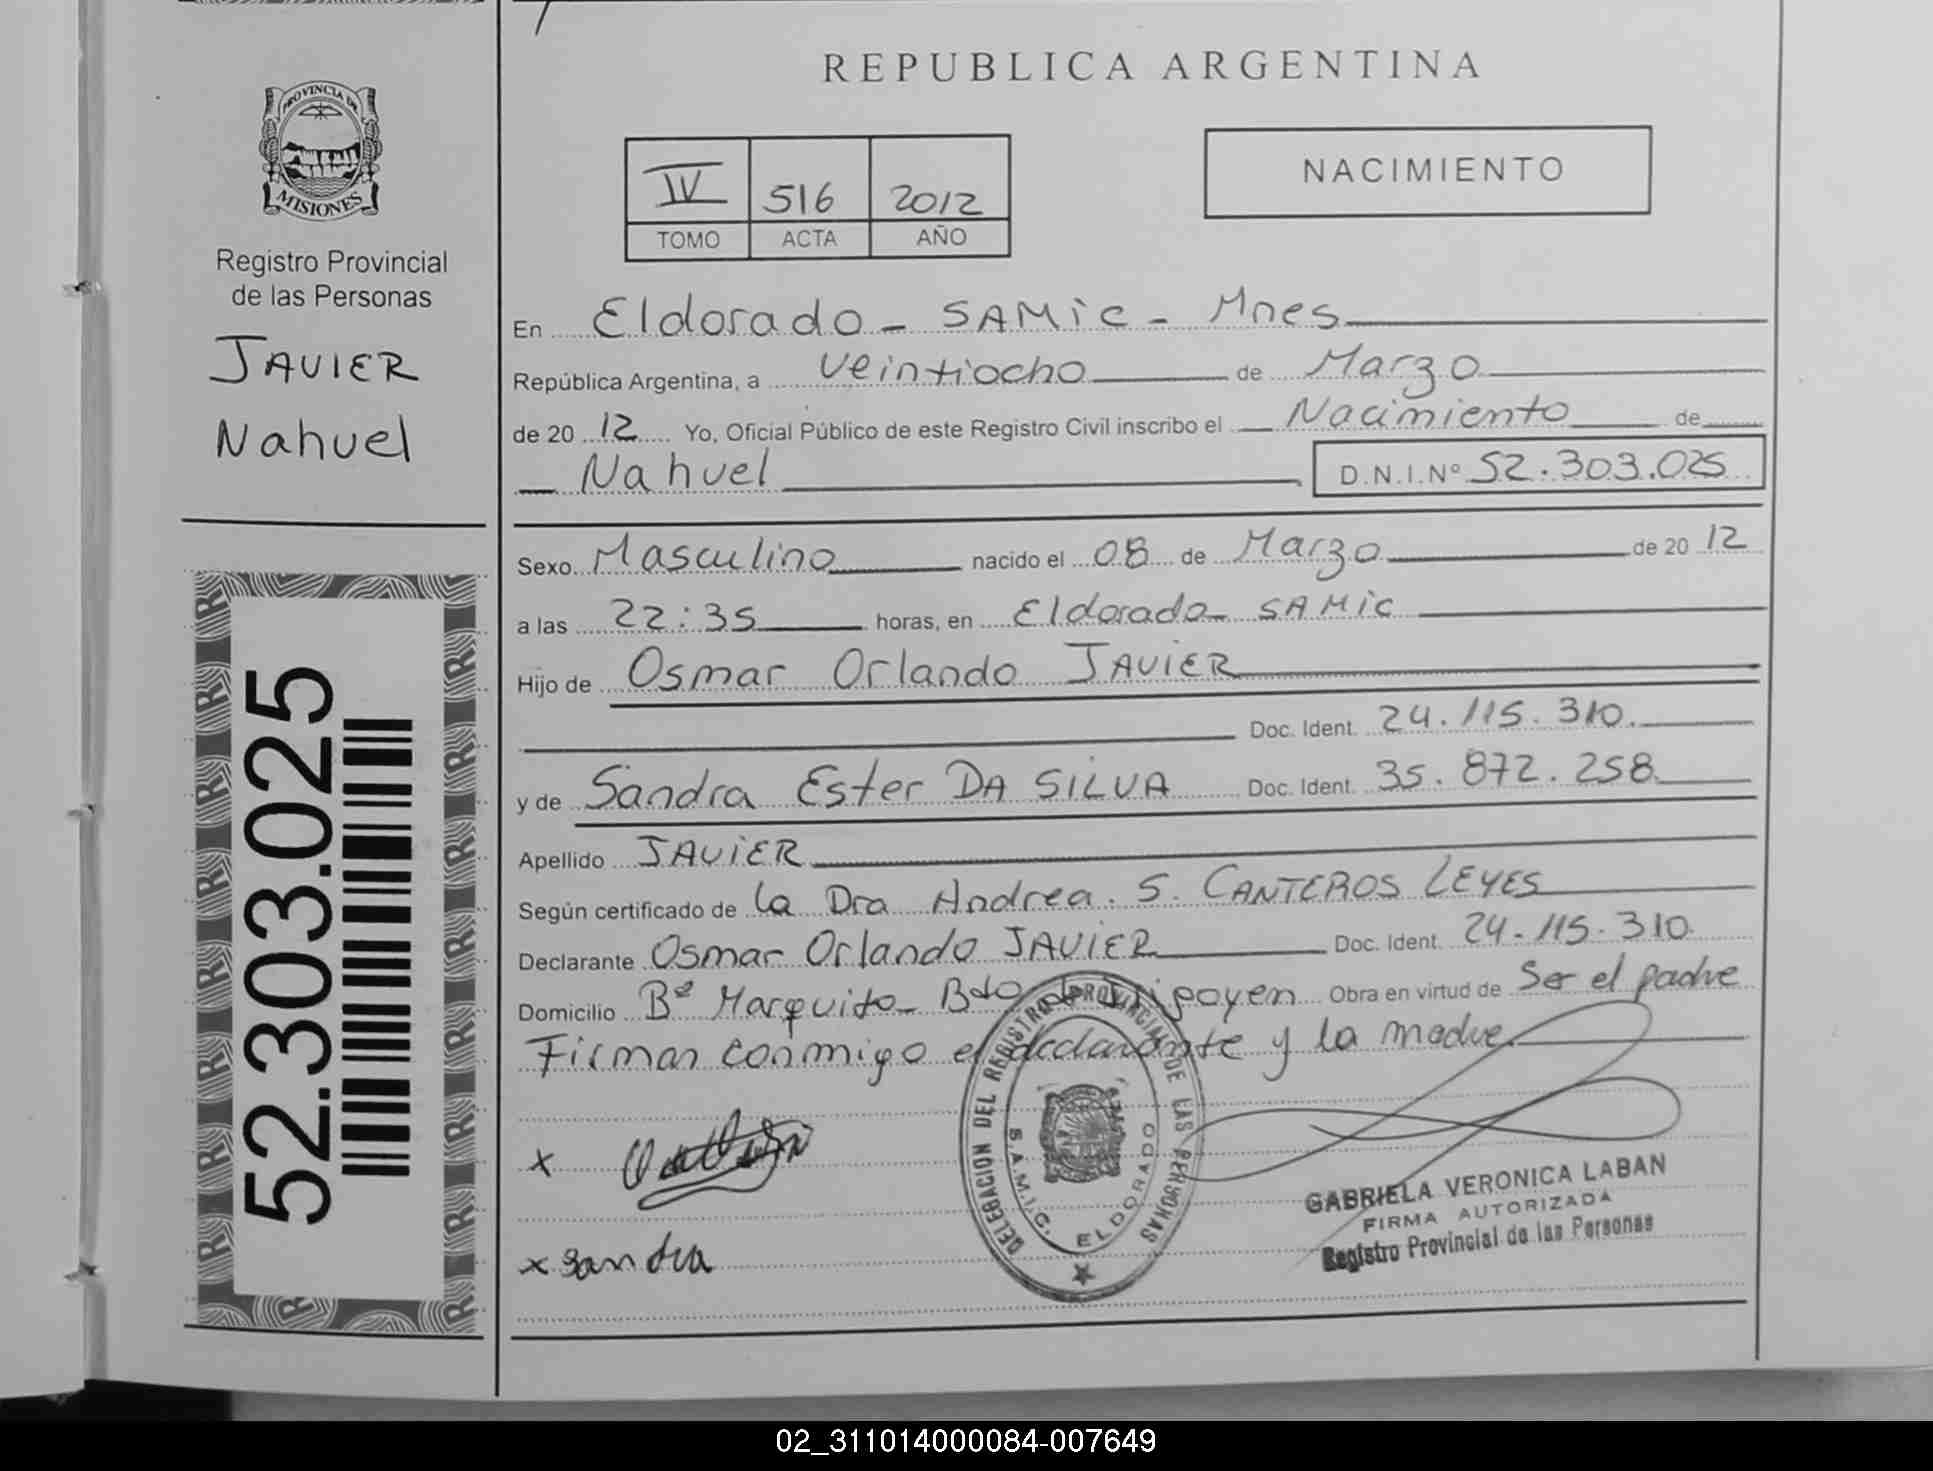 REPUBLICA ARGENTINA
PROVINCIA DE
MISIONES
Registro Provincial
de las Personas
JAVIER
Nahuel
52.303.025
IV 516 2012
TOMO ACTA AÑO
NACIMIENTO
En Eldorado - SAMiC - Mnes
República Argentina, a veintiocho de Marzo
de 20 12 Yo, Oficial Público de este Registro Civil inscribo el Nacimiento de
Nahuel D.N.I.Nº 52.303.025
Sexo Masculino nacido el 08 de Marzo de 20 12
a las 22:35 horas, en Eldorado - SAMiC
Hijo de Osmar Orlando JAVIER
Doc. Ident. 24.115.310
y de Sandra Ester DA SILVA Doc. Ident. 35.872.258
Apellido JAVIER
Según certificado de la Dra Andrea. S. CANTEROS LEYES
Declarante Osmar Orlando JAVIER Doc. Ident. 24.115.310
Domicilio Bº Marquito - Bdo de Irigoyen Obra en virtud de Ser el padre
Firman conmigo el declarante y la madre
x
x Sandra
DELEGACION DEL REGISTRO PROVINCIAL DE LAS PERSONAS
S.A.M.I.C. ELDORADO
GABRIELA VERONICA LABAN
FIRMA AUTORIZADA
Registro Provincial de las Personas
02_311014000084-007649